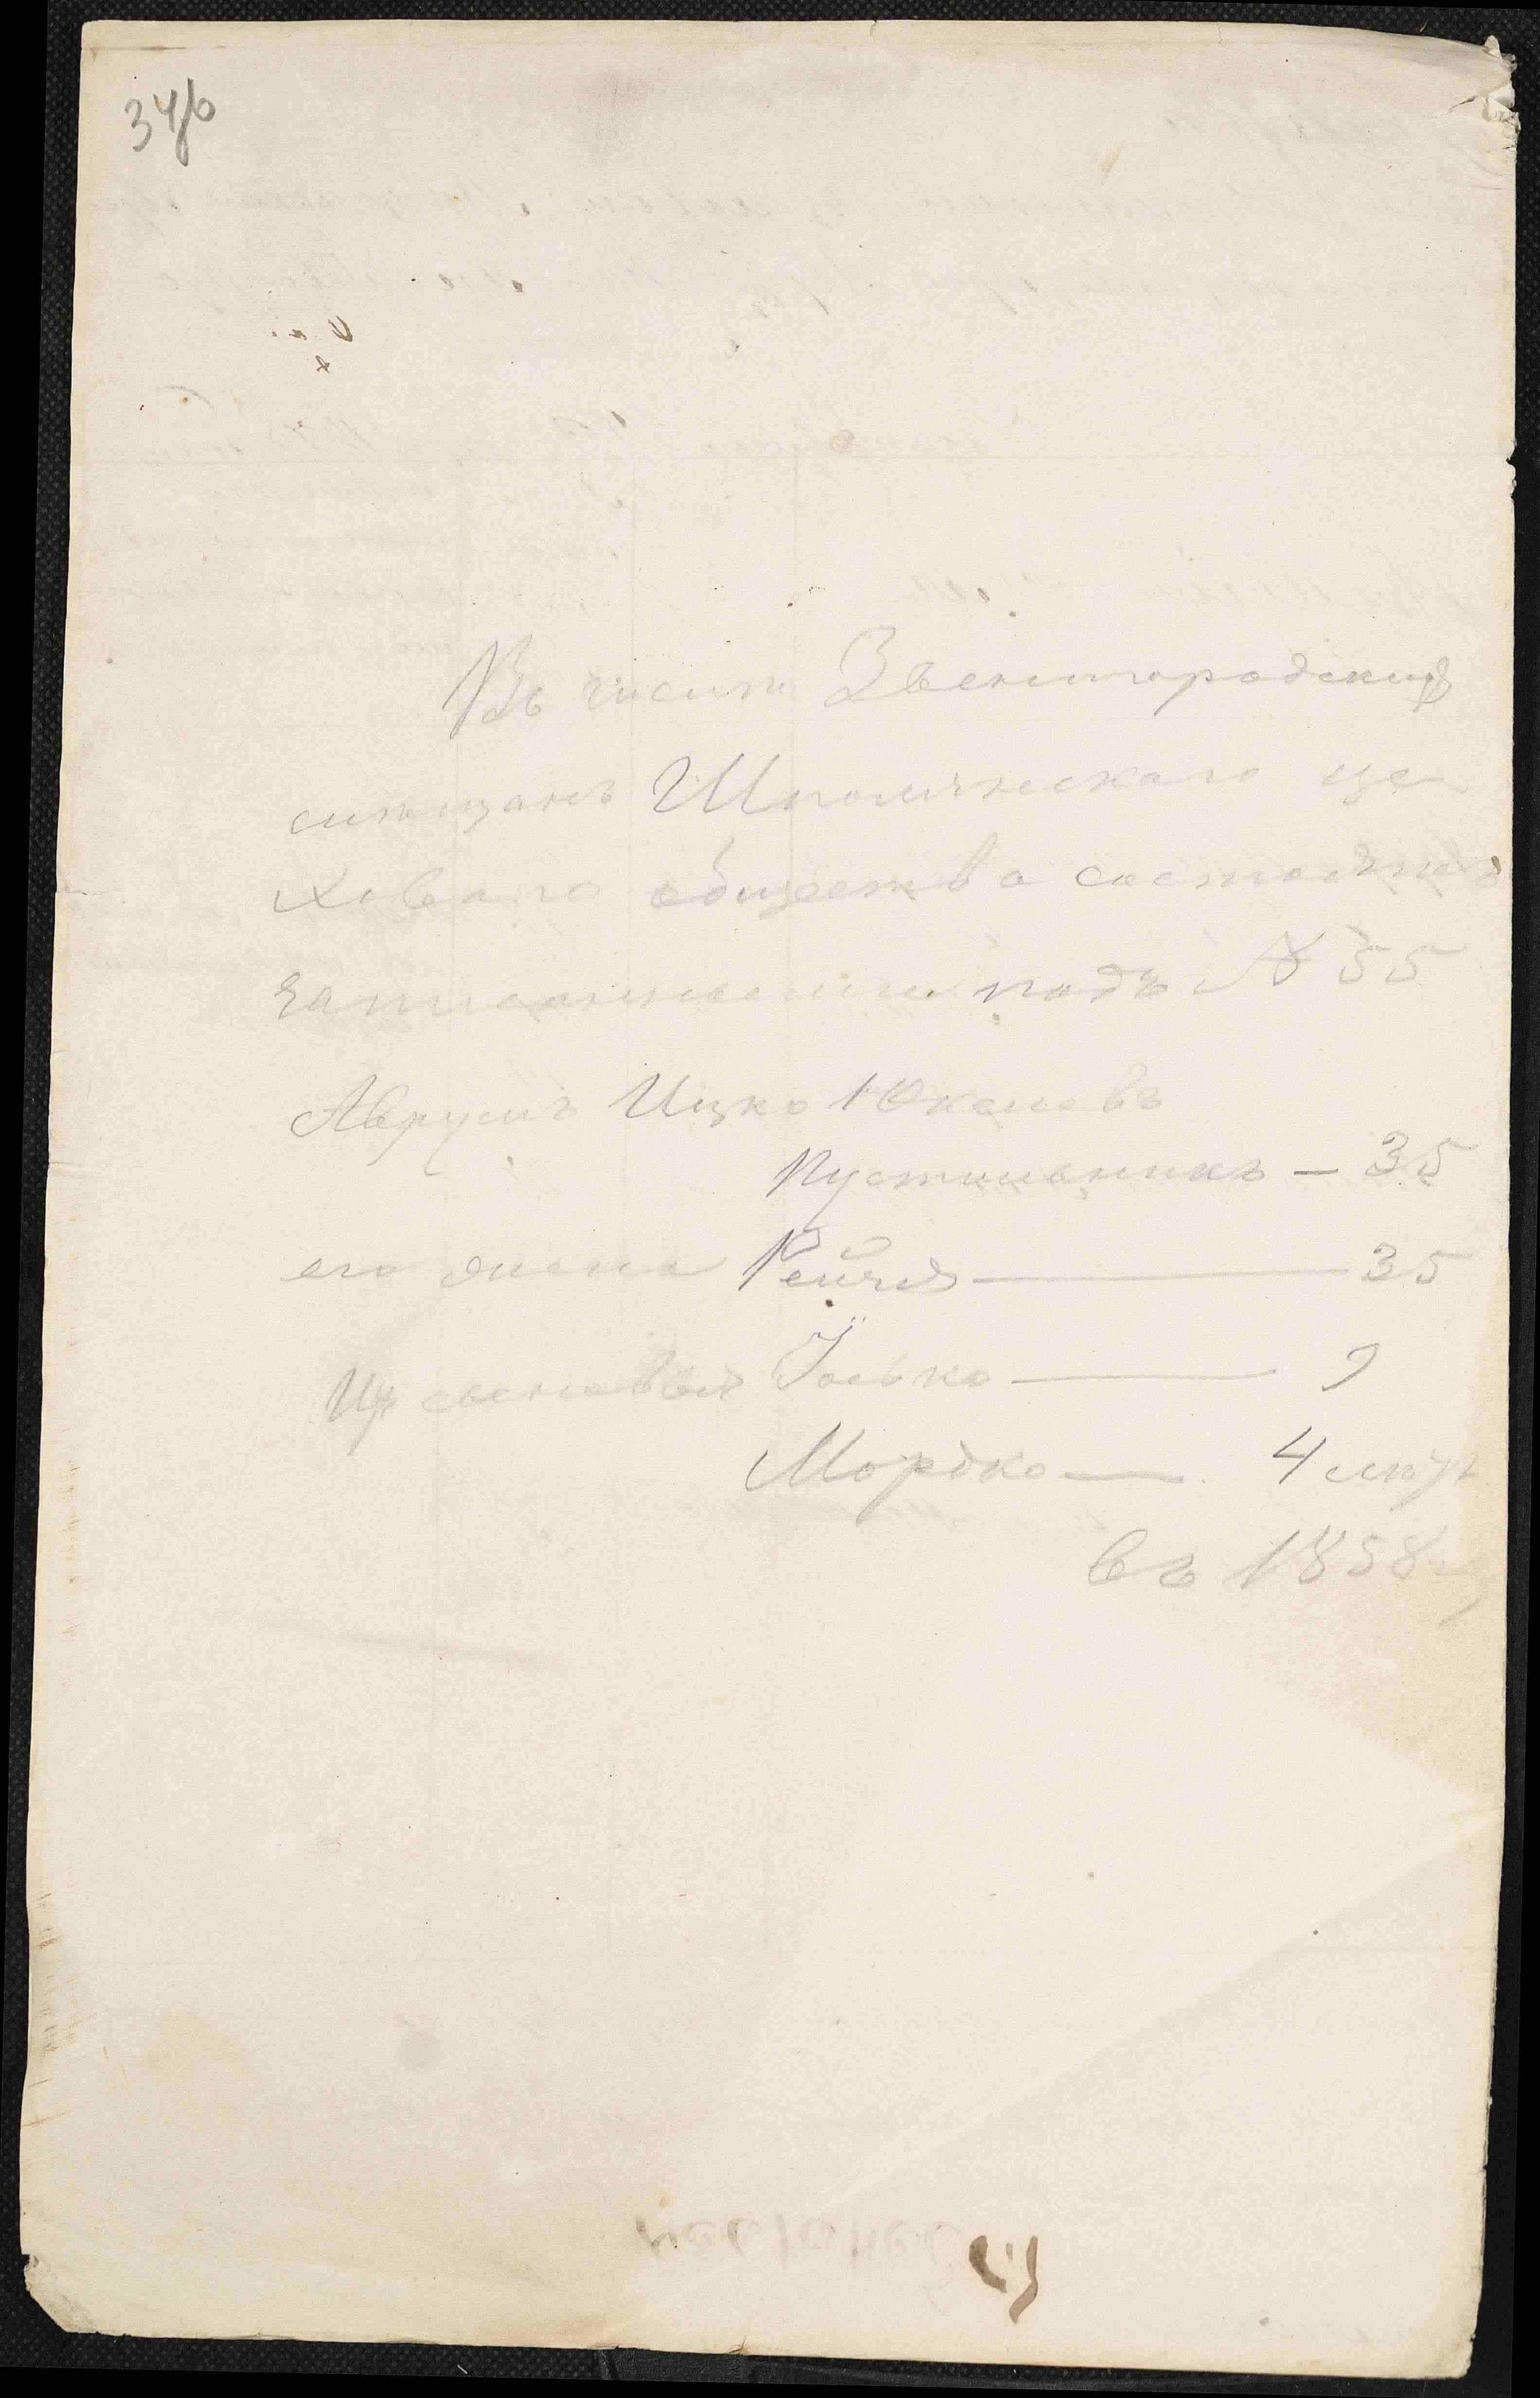 346
Въ числѣ Звенигородскихъ
мѣщанъ Шполянскаго це
ховаго общества состоятъ
записанными подъ № 55
Аврумъ Ицко Юкелевъ
Пустильникъ — 35
его жена Рейзя — 35
Их сыновья Іосько — 9
Мордко — 4 лѣтъ
въ 1858 г